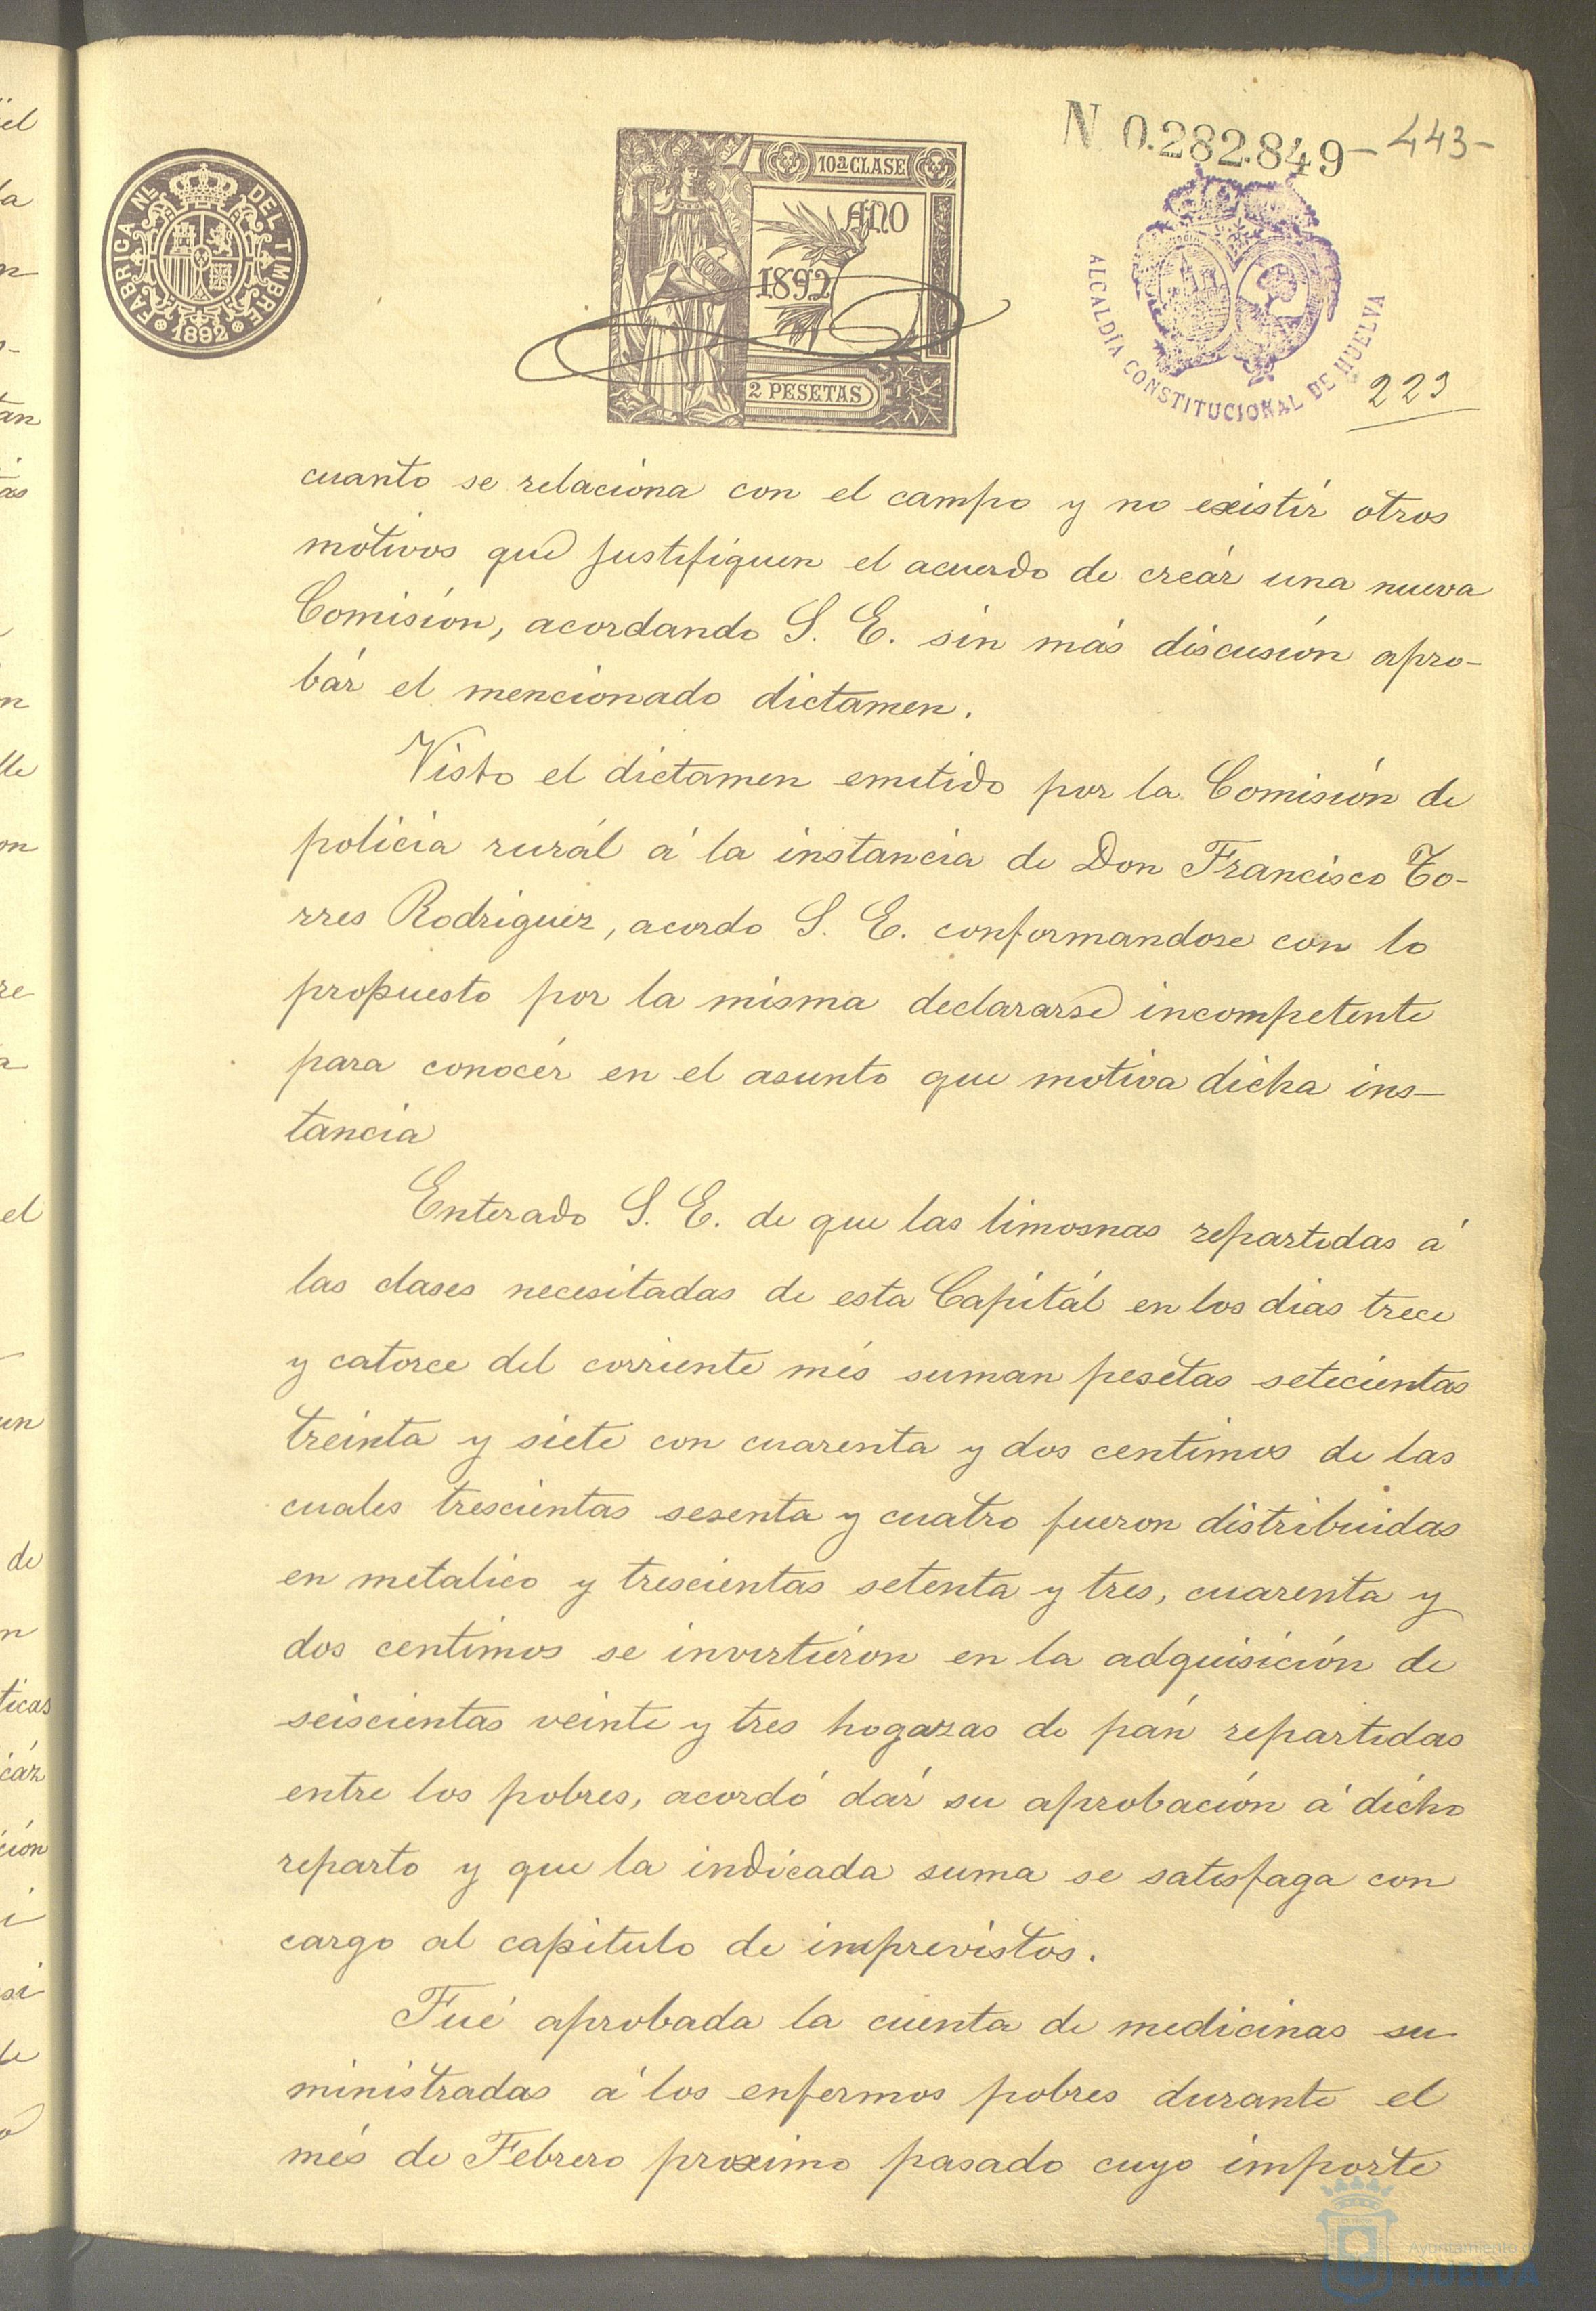 N 0.282.849 - 443 -
FABRICA NL. DEL TIMBRE
1892
10ª CLASE
AÑO
1892
2 PESETAS
ALCALDÍA CONSTITUCIONAL DE HUELVA
223
cuanto se relaciona con el campo y no existír otros
motivos que justifiquen el acuerdo de creár una nueva
Comisión, acordando S. E. sin más discusión apro-
bár el mencionado dictamen.
Visto el dictamen emitido por la Comisión de
policia rurál á la instancia de Don Francisco To-
rres Rodriguez, acordo S. E. conformandose con lo
propuesto por la misma declararse incompetente
para conocér en el asunto que motiva dicha ins-
tancia
Enterado S. E. de que las limosnas repartidas á
las clases necesitadas de esta Capitál en los dias trece
y catorce del corriente més suman pesetas setecientas
treinta y siete con cuarenta y dos centimos de las
cuales trescientas sesenta y cuatro fueron distribuidas
en metalico y trescientas setenta y tres, cuarenta y
dos centimos se invirtieron en la adquisición de
seiscientas veinte y tres hogazas de pán repartidas
entre los pobres, acordó dár su aprobación á dicho
reparto y que la indicada suma se satisfaga con
cargo al capitulo de imprevistos.
Fué aprobada la cuenta de medicinas su
ministradas á los enfermos pobres durante el
més de Febrero proximo pasado cuyo importe
Ayuntamiento de
HUELVA